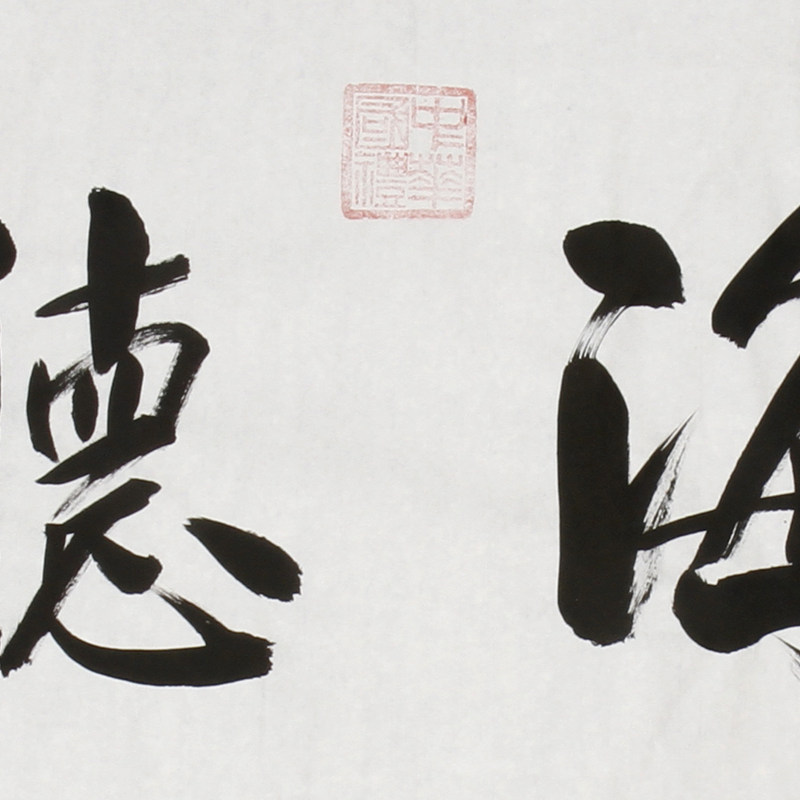 海德
中華國禮